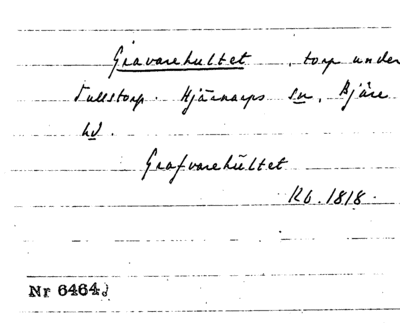 Gravarehultet, torp under
Tullstorp. Hjärnarps sn, Bjäre
hd.
Grafvarehültet
Rb. 1818.
Nr 6464